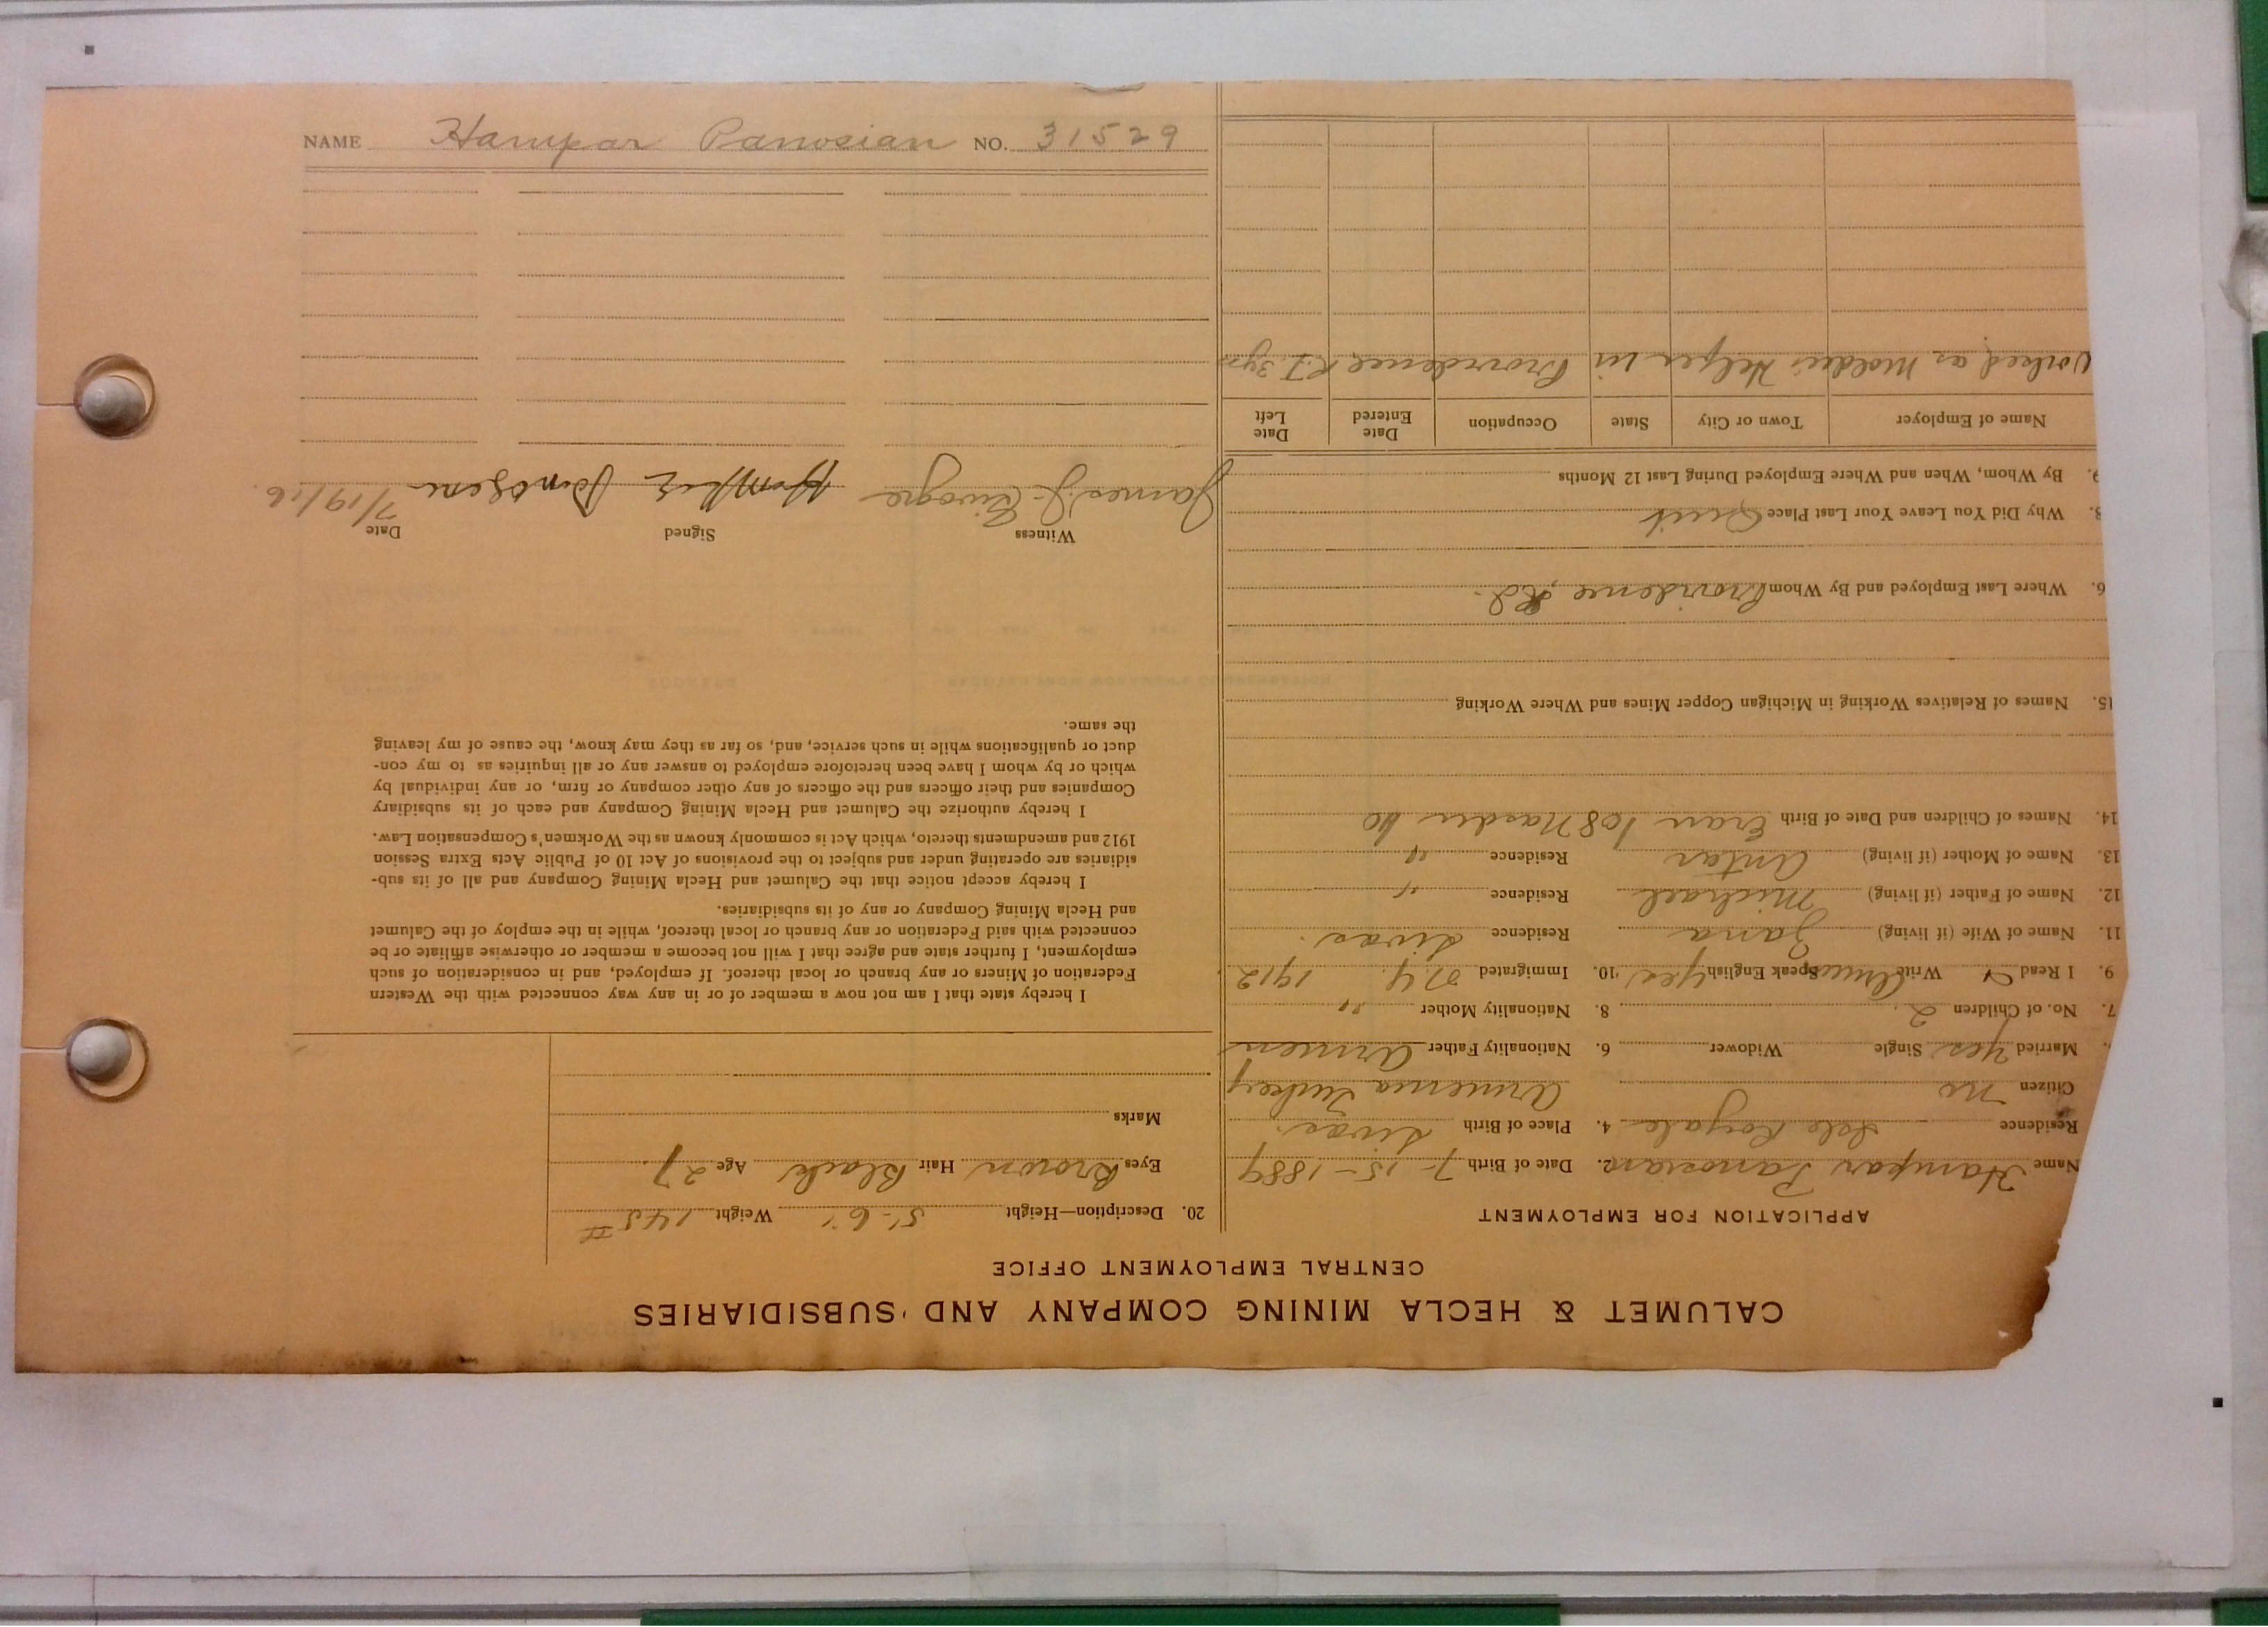 NAME Hampar Panosian NO. 31529
CALUMET & HECLA MINING COMPANY AND SUBSIDIARIES
CENTRAL EMPLOYMENT OFFICE
APPLICATION FOR EMPLOYMENT
Name Hampar Panosian 2. Date of Birth 7-15-1889
Residence Isle Royale 4. Place of Birth Sivas.
Citizen No Armenia Turkey
Married Yes Single Widower 6. Nationality Father Armen
7. No. of Children 2. 8. Nationality Mother "
9. I Read Write Speak English yes 10. Immigrated N.Y. 1912
11. Name of Wife (if living) Zana Residence Sivas.
12. Name of Father (if living) Michael Residence "
13. Name of Mother (if living) Antar Residence "
14. Names of Children and Date of Birth
15. Names of Relatives Working in Michigan Copper Mines and Where Working
6. Where Last Employed and By Whom Providence, R.I.
8. Why Did You Leave Your Last Place Quit
9. By Whom, When and Where Employed During Last 12 Months
Name of Employer Town or City State Occupation Date Entered Date Left
Worked as Molder Helper in Providence R.I. 3yrs
20. Description—Height 5'-6" Weight 145#
Eyes Brown Hair Black Age 27.
Marks
I hereby state that I am not now a member of or in any way connected with the Western
Federation of Miners or any branch or local thereof. If employed, and in consideration of such
employment, I further state and agree that I will not become a member or otherwise affiliate or be
connected with said Federation or any branch or local thereof, while in the employ of the Calumet
and Hecla Mining Company or any of its subsidiaries.
I hereby accept notice that the Calumet and Hecla Mining Company and all of its sub-
sidiaries are operating under and subject to the provisions of Act 10 of Public Acts Extra Session
1912 and amendments thereto, which Act is commonly known as the Workmen's Compensation Law.
I hereby authorize the Calumet and Hecla Mining Company and each of its subsidiary
Companies and their officers and the officers of any other company or firm, or any individual by
which or by whom I have been heretofore employed to answer any or all inquiries as to my con-
duct or qualifications while in such service, and, so far as they may know, the cause of my leaving
the same.
Witness Signed Date
James J. 7/19/16.